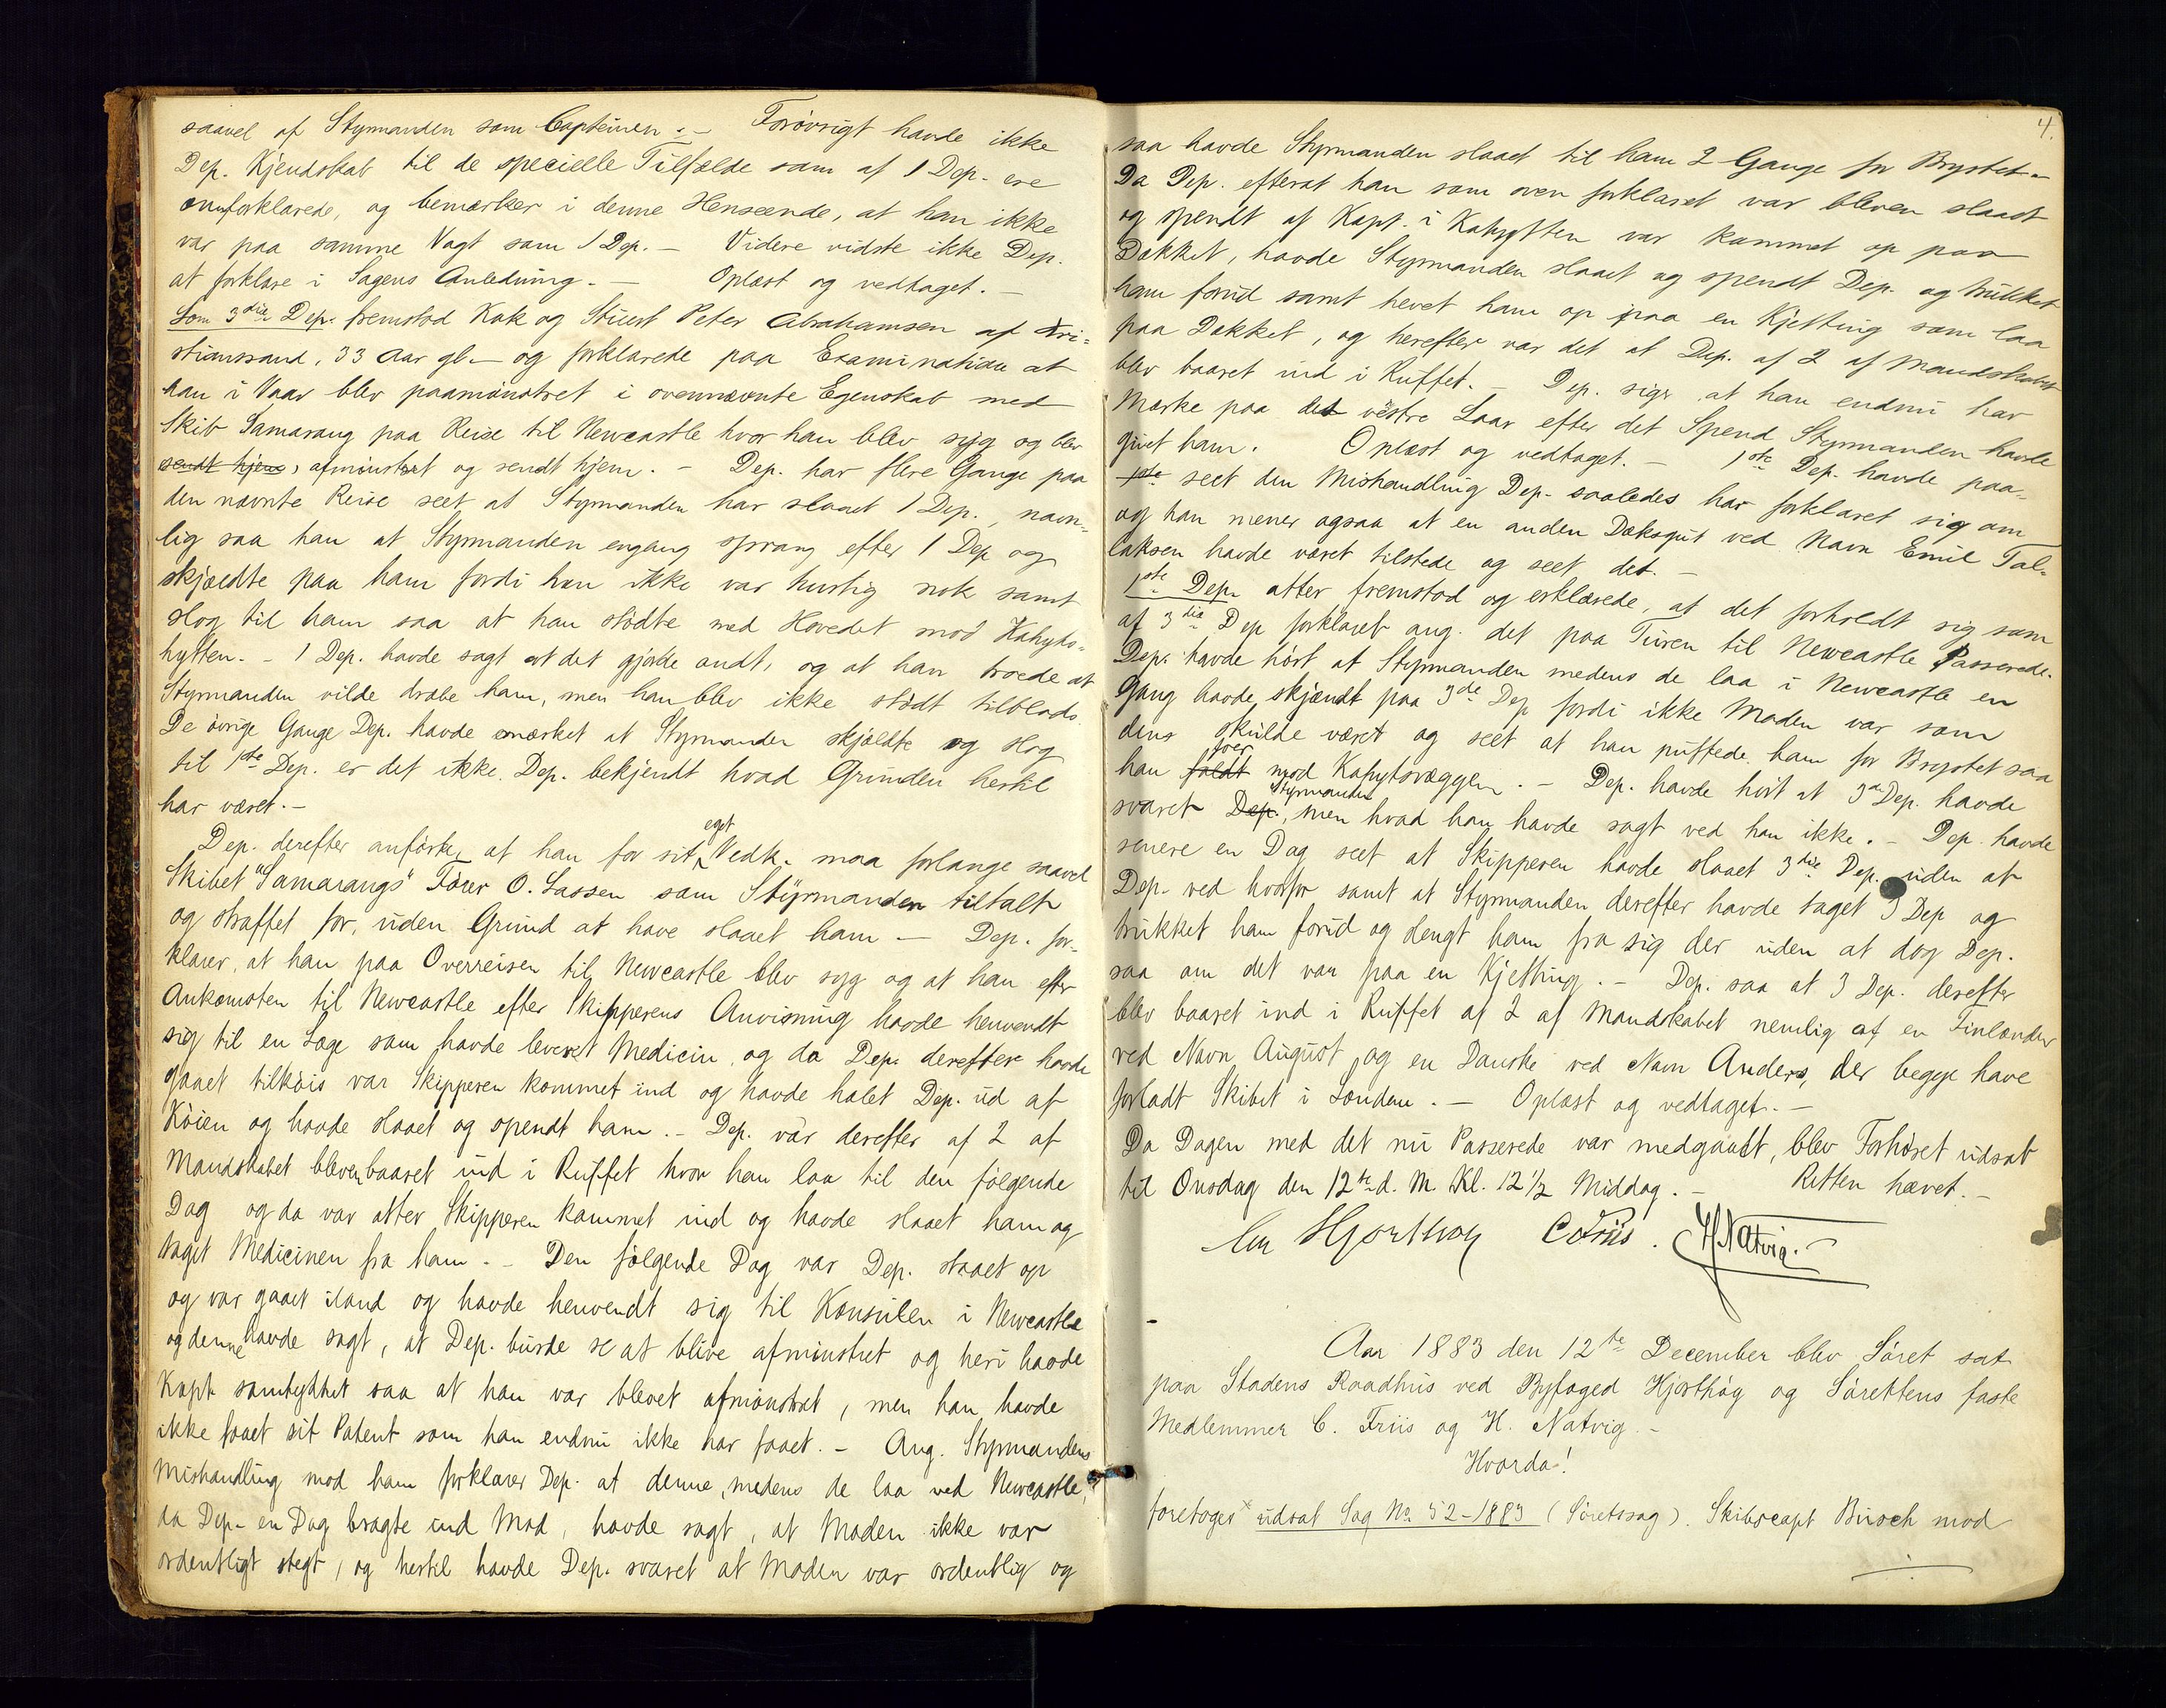 saavel af Styrmanden som Capteinen. – Forøvrigt havde ikke
Dep. Kjendskab til de specielle Tilfælde som af 1 Dep. ere
omforklarede, og bemærker i denne Henseende, at han ikke
var paa samme Vagt som 1 Dep. – Videre vidste ikke Dep.
at forklare i Sagens Anledning. – Oplæst og vedtaget. –
Som 3die Dep. fremstod Kok og Stuert Peter Abrahamsen af Kri-
stianssand, 33 Aar gl. – og forklarede paa Examination at
han i Vaar blev paamønstret i ovennævnte Egenskab med
Skib Samarang paa Reise til Newcastle hvor han blev syg og blev
sendt hjem, afmønstret og sendt hjem. – Dep. har flere Gange paa
den nævnte Reise seet at Styrmanden har slaaet 1 Dep., navn-
lig saa han at Styrmanden engang sprang efter 1 Dep og
skjældte paa ham fordi han ikke var hurtig nok samt
slog til ham saa at han stødte med Hovedet mod Kahyts-
hytten. – 1 Dep. havde sagt at det gjorde ondt, og at han troede at
Styrmanden vilde dræbe ham, men han blev ikke stødt tilblods.
De øvrige Gange Dep. havde mærket at Styrmanden skjældte og slog
til 1ste Dep. er det ikke Dep. bekjendt hvad Grunden hertil
har været. –
Dep. derefter anførte, at han for sit eget Vedk. maa forlange saavel
Skibet "Samarangs" Fører O. Lassen som Styrmanden tiltalt
og straffet for, uden Grund at have slaaet ham – Dep. for-
klarer, at han paa Overreisen til Newcastle blev syg og at han efter
Ankomsten til Newcastle efter Skipperens Anvisning havde henvendt
sig til en Læge som havde leveret Medicin, og da Dep. derefter havde
gaaet tilkøis var Skipperen kommet ind og havde halet Dep. ud af
Køien og havde slaaet og spendt ham. – Dep. var derefter af 2 af
Mandskabet bleven baaret ind i Ruffet hvor han laa til den følgende
Dag og da var atter Skipperen kommet ind og havde slaaet ham og
taget Medicinen fra ham. – Den følgende Dag var Dep. staaet op
og var gaaet iland og havde henvendt sig til Konsulen i Newcastle
og denne havde sagt, at Dep. burde se at blive afmønstret og heri havde
Kapt samtykket saa at han var blevet afmønstret, men han havde
ikke faaet sit Patent som han endnu ikke har faaet. – Ang. Styrmandens
Mishandling mod ham forklarer Dep. at denne, medens de laa ved Newcastle,
da Dep. en Dag bragte ind Mad, havde sagt, at Maden ikke var
ordentligt stegt, og hertil havde Dep. svaret at Maden var ordentlig og
4.
saa havde Styrmanden slaaet til ham 2 Gange for Brystet. –
Da Dep. efterat han som oven forklaret var bleven slaaet
og spendt af Kapt. i Kahytten var kommet op paa
Dækket, havde Styrmanden slaaet og spendt Dep. og trukket
ham forud samt hevet ham op paa en Kjetting som laa
paa Dækket, og herefter var det at Dep. af 2 af Mandskabet
blev baaret ind i Ruffet. – Dep. siger at han endnu har
Mærke paa det vestre Laar efter det Spend Styrmanden havde
givet ham. Oplæst og vedtaget. – 1ste Dep. havde paa-
1ste seet den Mishandling Dep. saaledes har forklaret sig om
og han mener ogsaa at en anden Dæksgut ved Navn Emil Tal-
laksen havde været tilstede og seet det. –
1ste Dep. atter fremstod og erklærede, at det forholdt sig som
af 3die Dep forklaret ang. det paa Turen til Newcastle Passerede.
Dep. havde hørt at Styrmanden medens de laa i Newcastle en
Gang havde skjændt paa 3de Dep fordi ikke Maden var som
den skulde været og seet at han puffede ham for Brystet saa
han faldt for mod Kahytsvæggen. – Dep. havde hørt at 3de Dep. havde
svaret Dep. Styrmanden, men hvad han havde sagt ved han ikke. – Dep. havde
senere en Dag seet at Skipperen havde slaaet 3die Dep. uden at
Dep. ved hvorfor samt at Styrmanden derefter havde taget 3 Dep og
trukket ham forud og dengt ham fra sig der uden at dog Dep.
saa om det var paa en Kjetting. – Dep. saa at 3 Dep. derefter
blev baaret ind i Ruffet af 2 af Mandskabet nemlig af en Finlænder
ved Navn August og en Danske ved Navn Anders, der begge have
forladt Skibet i London. – Oplæst og vedtaget. –
Da Dagen med det nu Passerede var medgaaet, blev Forhøret udsat
til Onsdag den 12te d. M. Kl. 12 1/2 Middag. – Retten hævet. –
Hjorthøy C Friis. H. Natvig.
Aar 1883 den 12te December blev Søret sat
paa Stadens Raadhus ved Byfoged Hjorthøy og Sørettens faste
Medlemmer C. Friis og H. Natvig. –
Hvorda!
foretoges udsat Sag No. 52-1883 (Søretssag). Skibscapt Busch mod